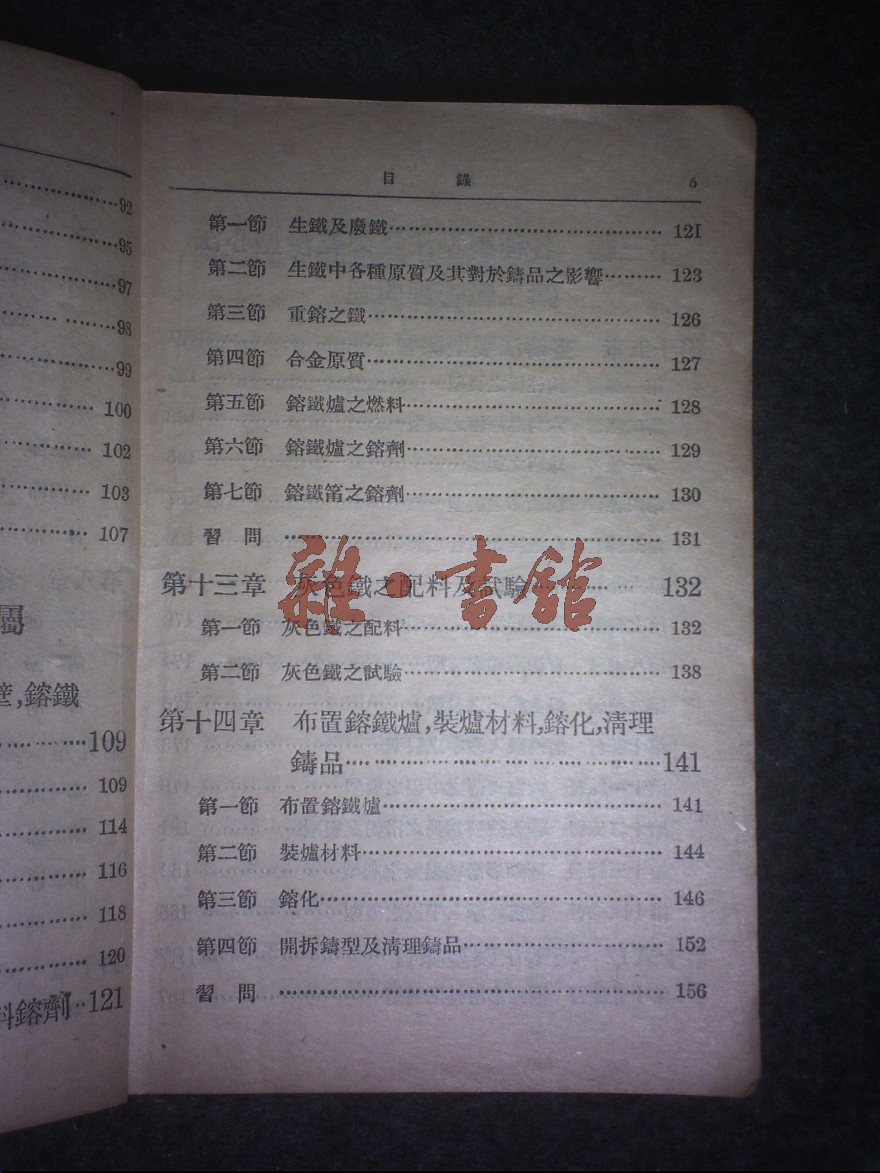 92
95
97
98
99
100
102
103
107
屬
,鎔鐵
109
109
114
116
118
120
料鎔劑…121
目 錄 5
第一節 生鐵及廢鐵…………121
第二節 生鐵中各種原質及其對於鑄品之影響………123
第三節 重鎔之鐵…………126
第四節 合金原質…………127
第五節 鎔鐵爐之燃料…………128
第六節 鎔鐵爐之鎔劑…………129
第七節 鎔鐵筩之鎔劑…………130
習 問 …………131
第十三章 灰色鐵之配料及試驗…………132
雜·書館
第一節 灰色鐵之配料…………132
第二節 灰色鐵之試驗…………138
第十四章 布置鎔鐵爐,裝爐材料,鎔化,清理
鑄品…………141
第一節 布置鎔鐵爐…………141
第二節 裝爐材料…………144
第三節 鎔化…………146
第四節 開拆鑄型及清理鑄品…………152
習 問 …………156